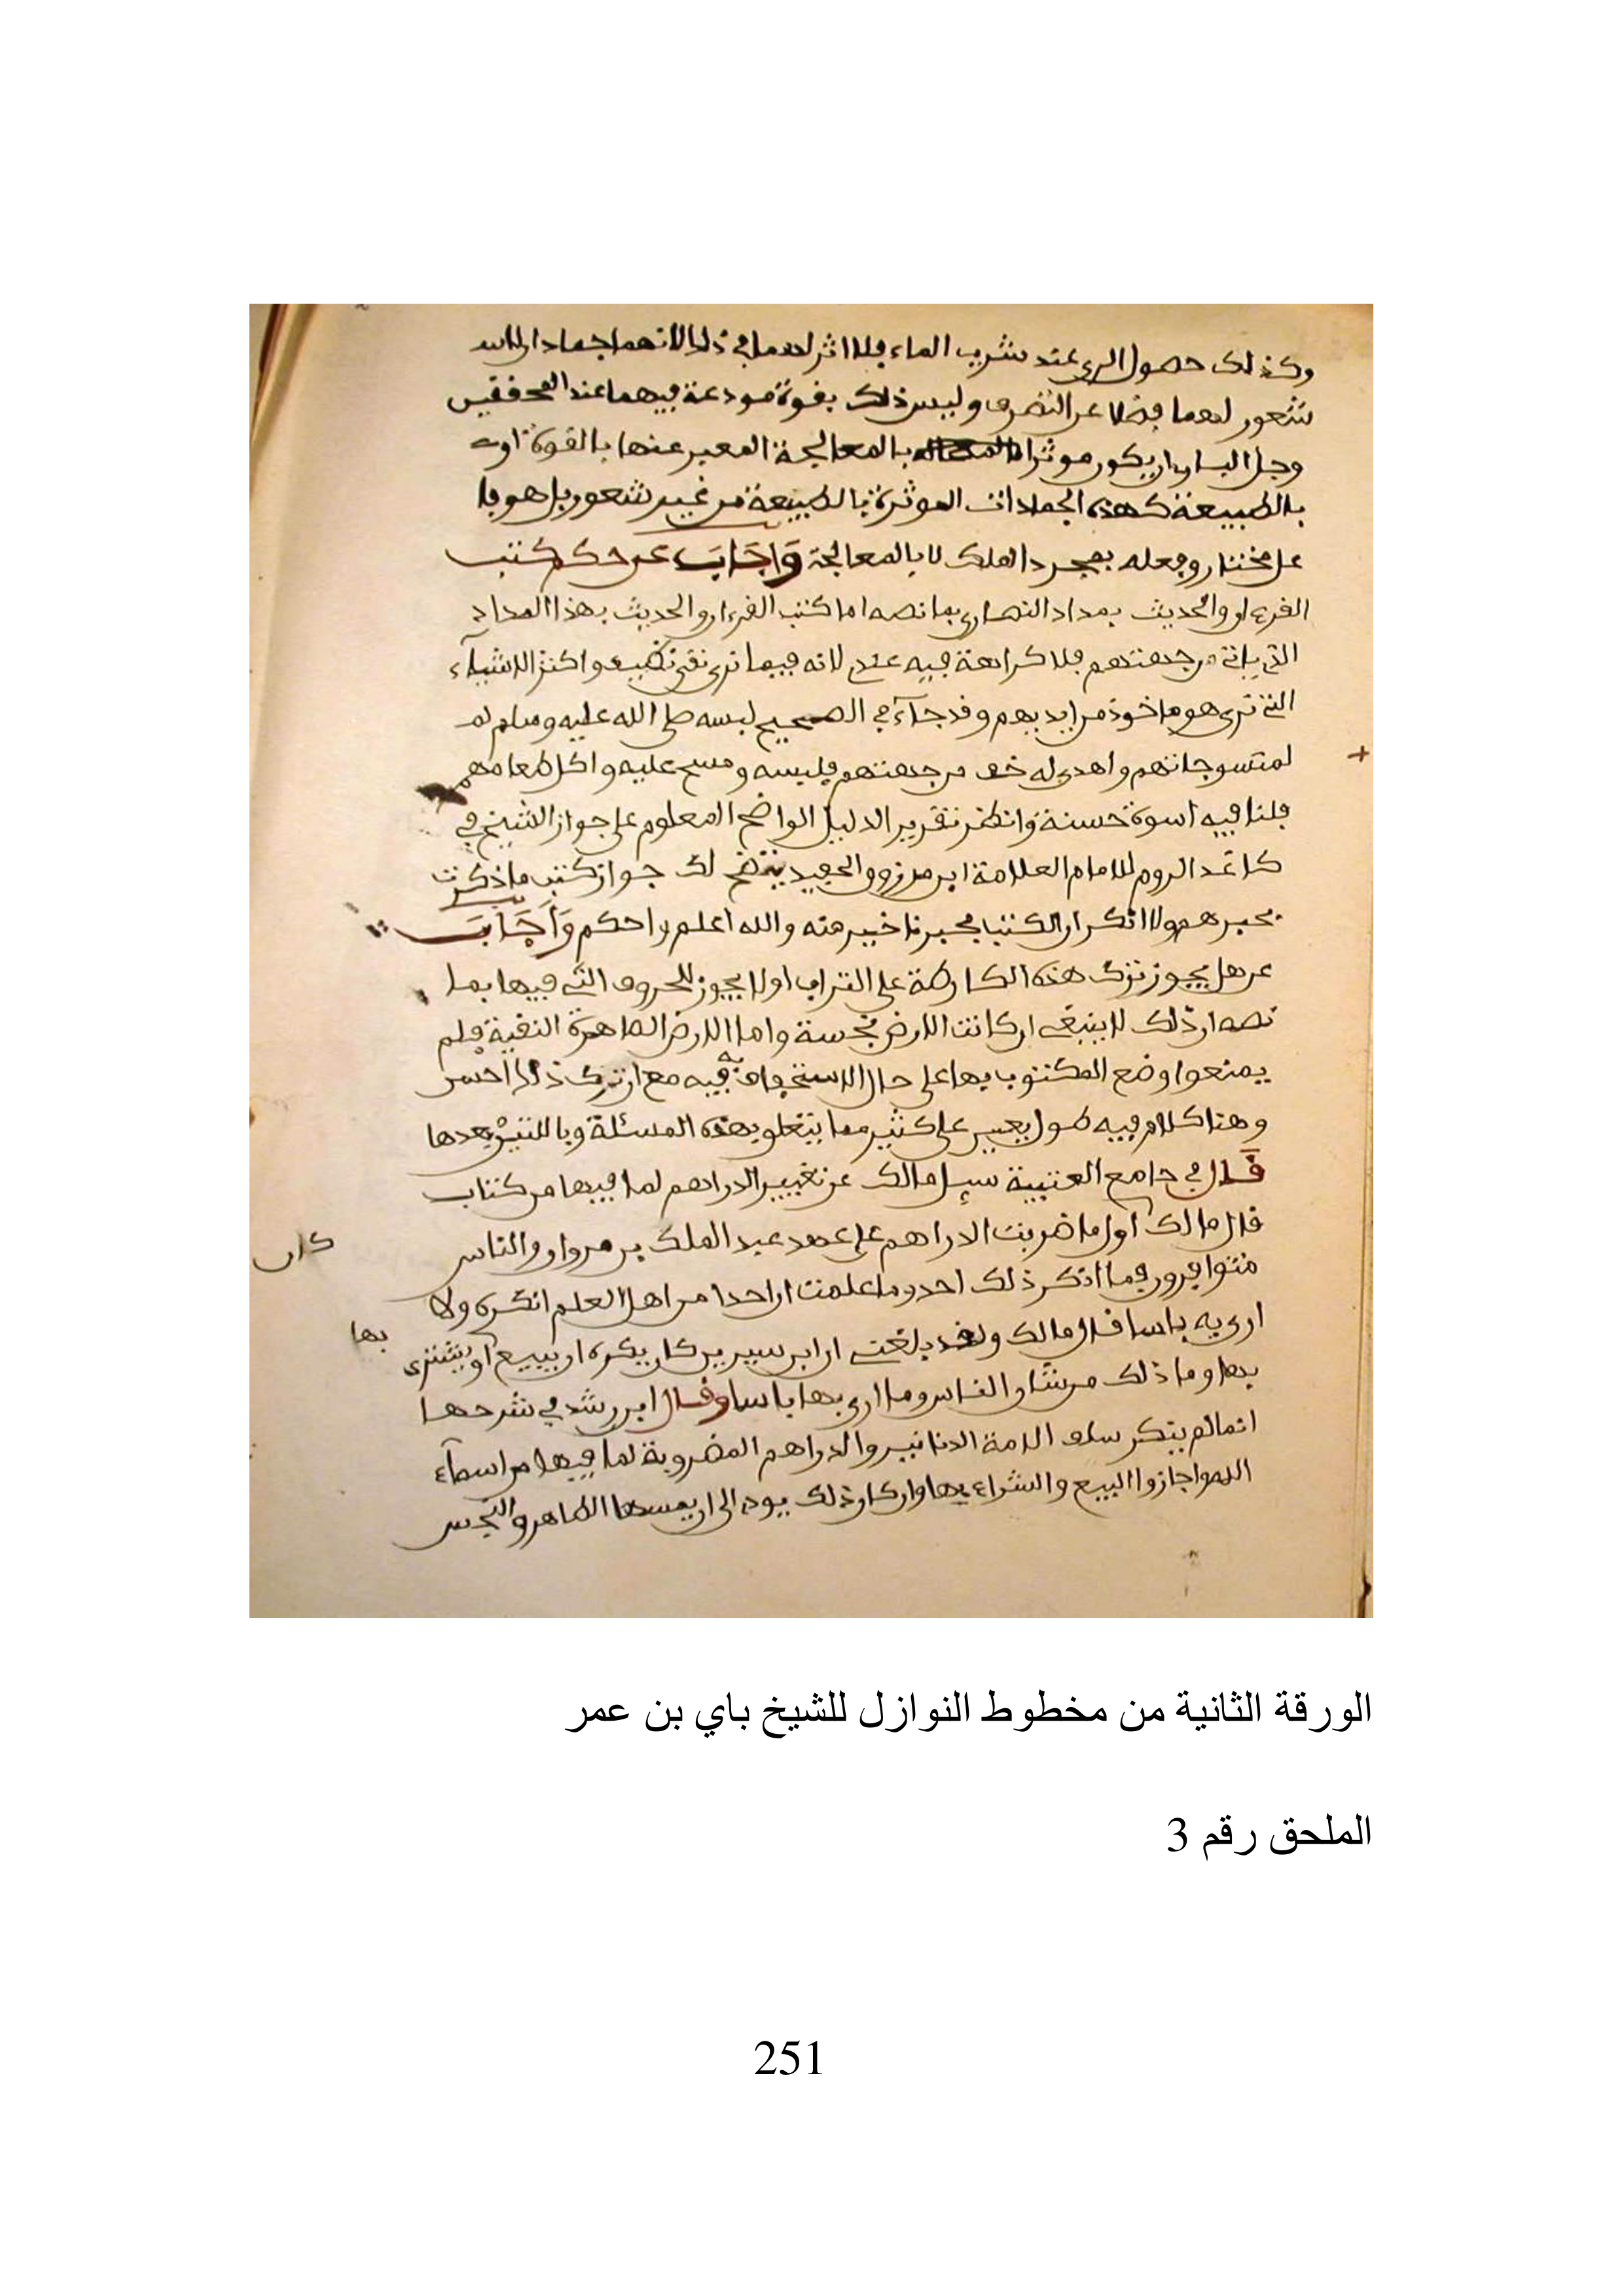 وكذلك حصول الري عند شرب الماء فلا اثر لهما في ذلك لانهما جمادان لا
شعور لهما فضلا عن التصرف وليس ذلك بقوة مودعة فيهما عند المحققين
وجل الباري ان يكون موثرا بالمعالجة المعبر عنها بالقوة او
بالطبيعة كهذه الجمادات الموثرة بالطبيعة من غير شعور بل هو فا
عل مختار وفعله بمجرد الملك لا بالمعالجة وَاجَابَ عن حكم كتب
القرءان والحديث بمداد النصارى بما نصه اما كتب القرءان والحديث بهذا المداد
التي ياتي من جهتهم فلا كراهة فيه عندي لانه فيما نرى نقي نظيف واكثر الاشيآء
التي ترى هو ماخوذ من ايديهم وقد جآء في الصحيح لبسه صلى الله عليه وسلم
لمنسوجاتهم واهدي له خف من جهتهم فلبسه ومسح عليه واكل طعامهم
فلنا فيه اسوة حسنة وانظر تقرير الدليل الواضح المعلوم على جواز النسخ في
كاغد الروم للامام العلامة ابن مرزوق الحفيد يتضح لك جواز كتب ما ذكرت
بحبرهم ولا انكر ان الكتب بحبرنا خير منه والله اعلم واحكم وَاَجَابَ
عن هل يجوز ترك هذه الكارطة على التراب او لا يجوز للحروف التي فيها بما
نصه ان ذلك لا ينبغي ان كانت الارض نجسة واما الارض الطاهرة النقية فلم
يمنعوا وضع المكتوب بها على حال الاستخفاف به فيه مع ان ترك ذلك احسن
وهنا كلام فيه طول يعين على كثير مما يتعلق بهذه المسئلة وبالتي بعدها
قَال في جامع العتبية سيل مالك عن تغيير الدراهم لما فيها من كتاب
قال مالك اول ما ضربت الدراهم على عهد عبد الملك بن مروان والناس
كان
متوافرون فما انكر ذلك احد وما علمت ان احدا من اهل العلم انكره ولا
ارى به باسا قال مالك ولقد بلغني ان ابن سيرين كان يكره ان يبيع او يشتري
بها
بها وما ذلك من شان الناس وما ارى بها باسا وقال ابن رشد في شرحها
انما لم ينكر سلف الامة الدنانير والدراهم المضروبة لما فيها من اسمآء
الله واجازوا البيع والشراء بها وان كان ذلك يودي الى ان يمسها الطاهر والنجس
الورقة الثانية من مخطوط النوازل للشيخ باي بن عمر
الملحق رقم 3
251